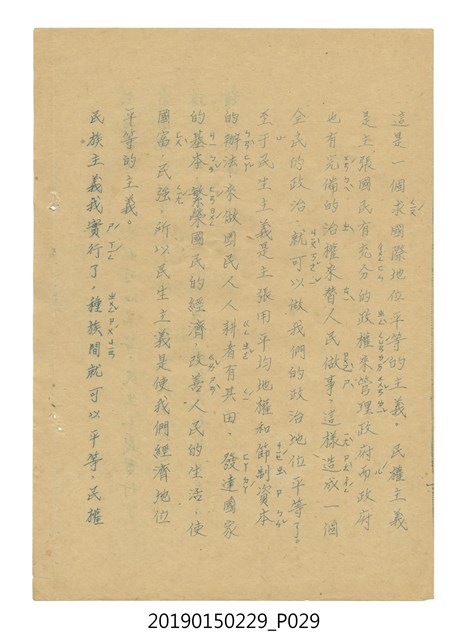 這是一個求國際地位平等的主義。民權主義
是主張國民有充分的政權來管理政府而政府
也有完備的治權來替人民做事，這樣造成一個
全民的政治，就可以做我們的政治地位平等了。
至于民生主義是主張用平均地權和節制資本
的辦法，來做國民人人耕者有其田，發達國家
的基本，繁榮國民的經濟，改善人民的生活，使
國富，民強，所以民生主義是使我們經濟地位
平等的主義。
民族主義我實行了，種族間就可以平等，民權
20190150229_P029